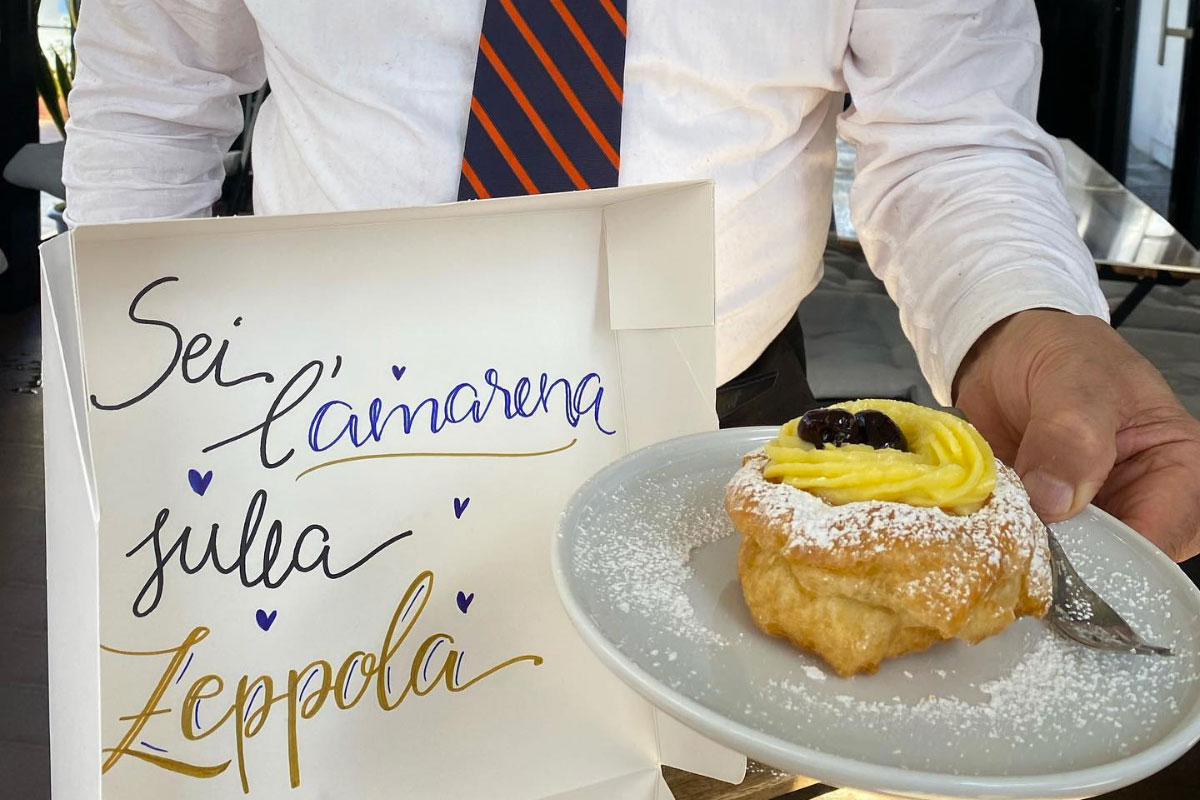 Sei
l'amarena
sulla
Zeppola